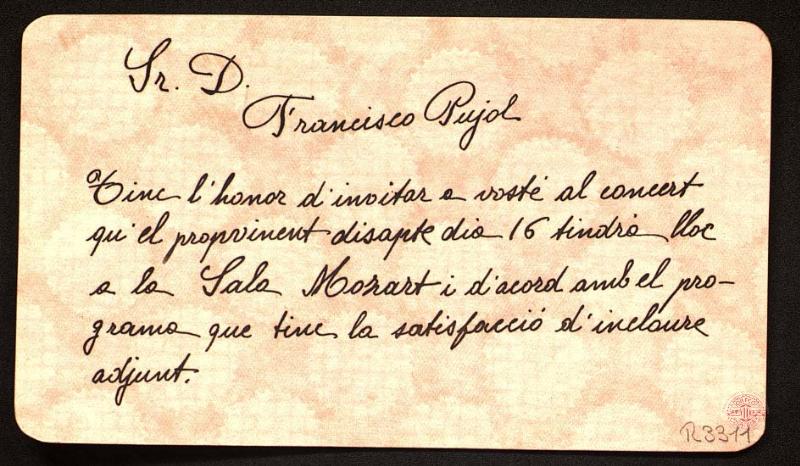 Sr. D.
Francisco Pujol
Tinc l'honor d'invitar a vosté al concert
qu'el propvinent disapte dia 16 tindrà lloc
a la Sala Mozart i d'acord amb el pro-
grama que tinc la satisfacció d'incloure
adjunt.
R3311